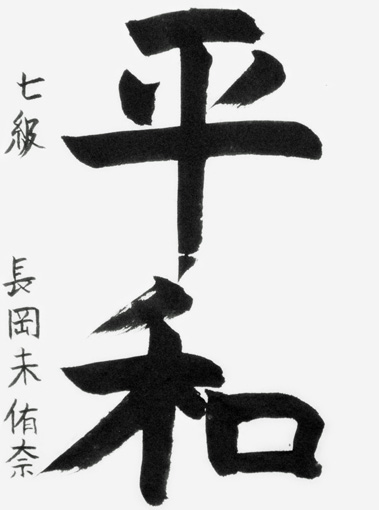 平和
七級 長岡未侑奈